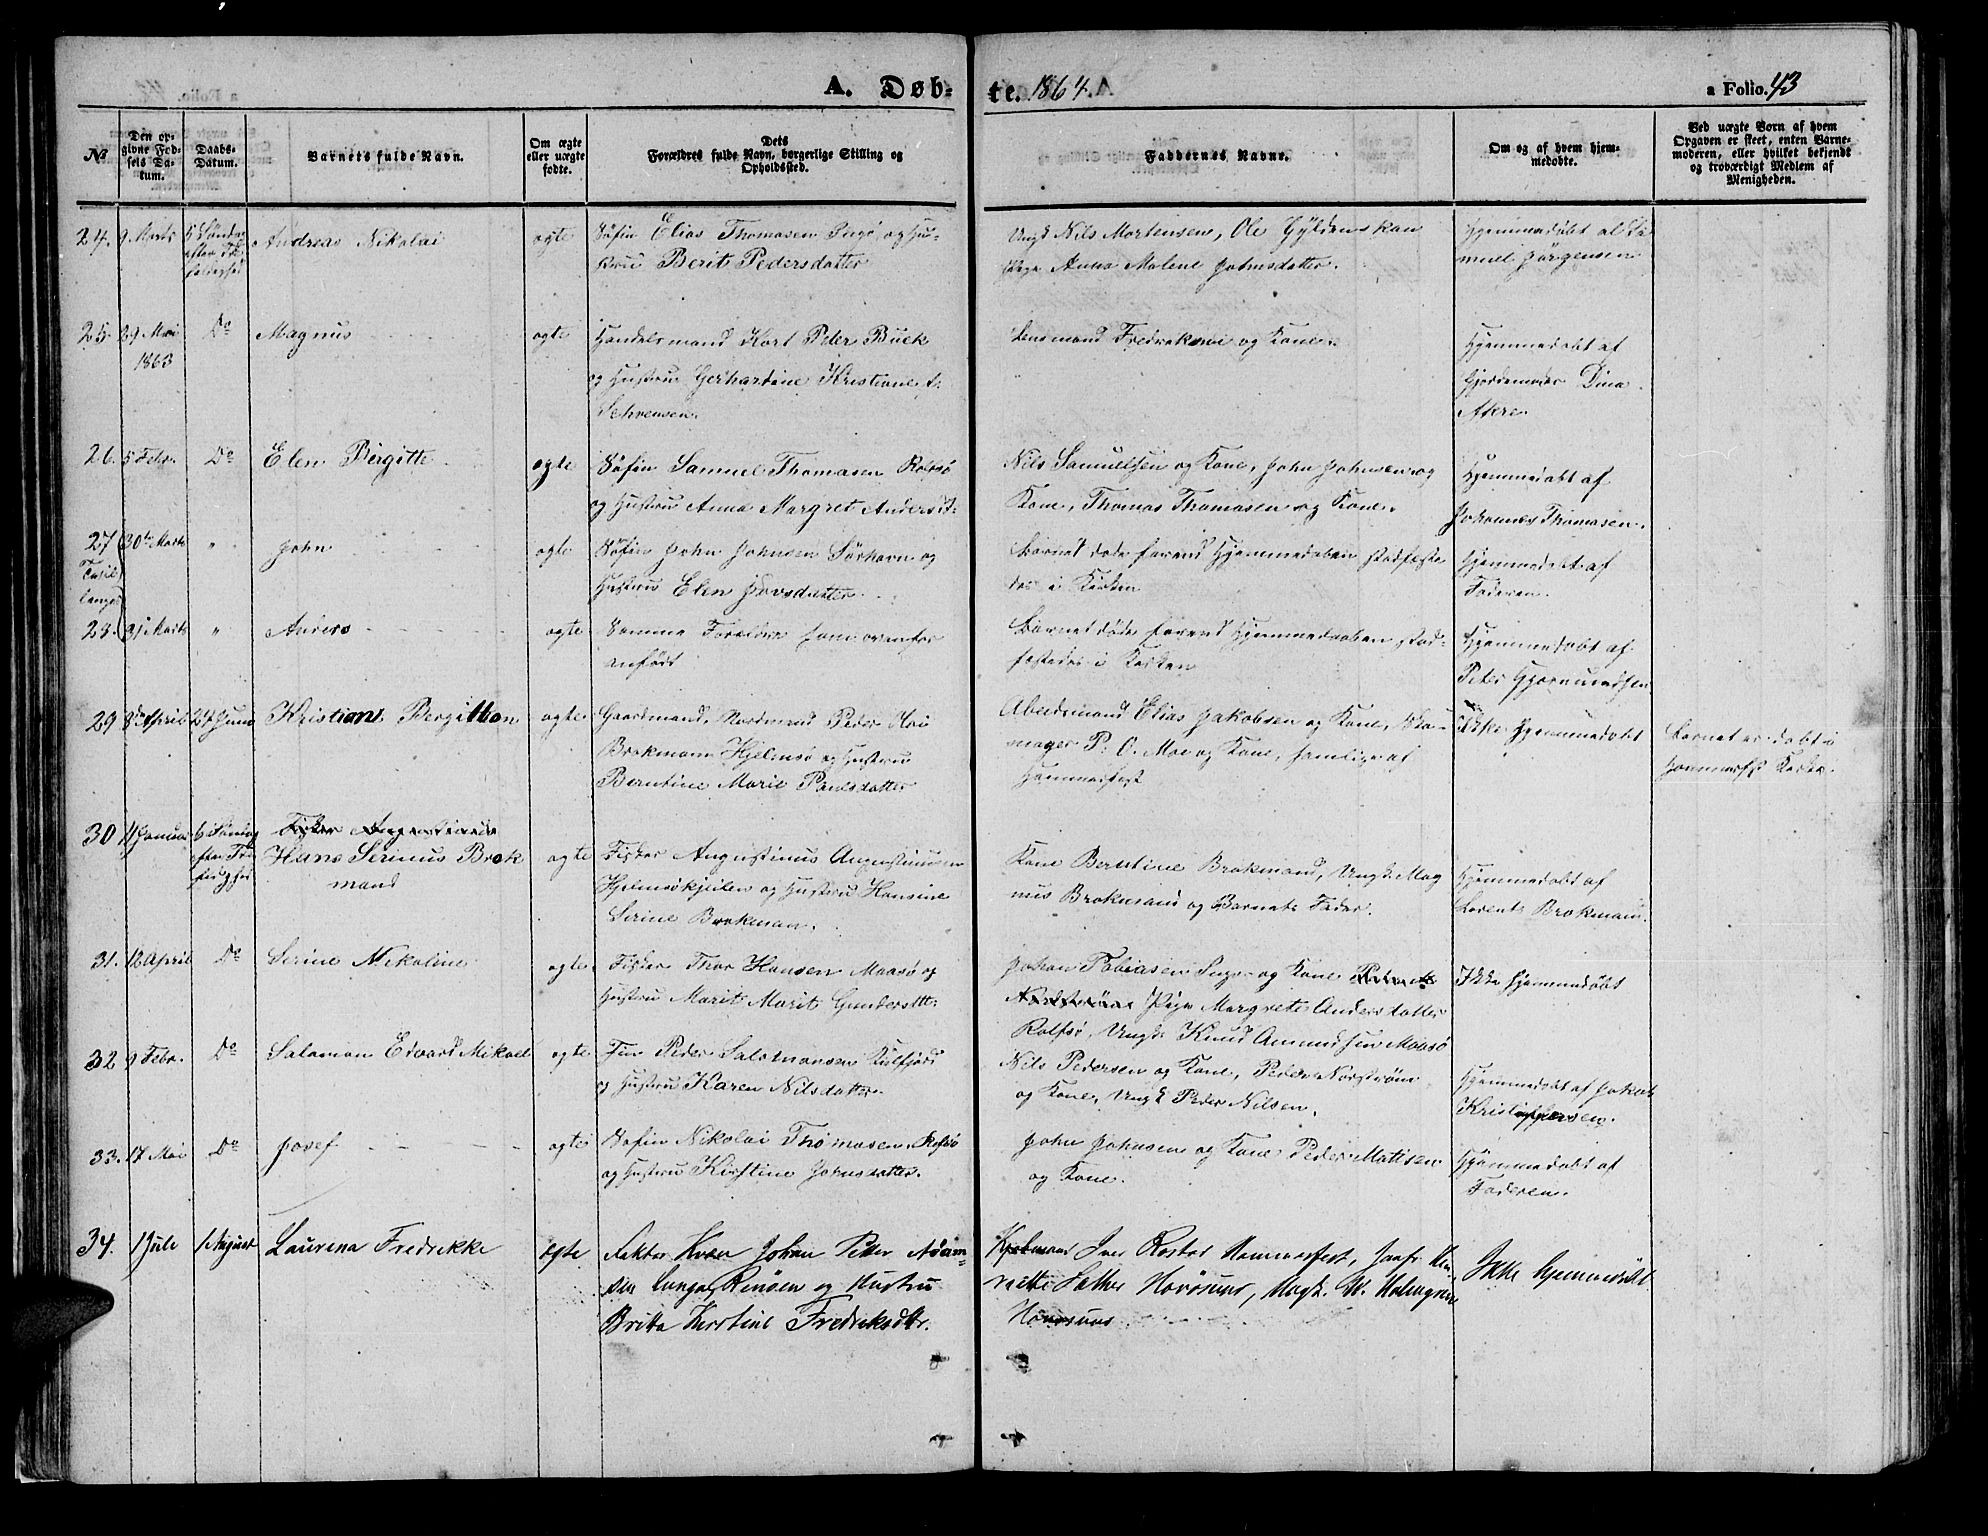 A. Døb-
te. 1864.
a Folio. 43
No
Den op-
givne Fød-
sels Da-
tum.
Daabs-
Datum.
Barnets fulde Navn.
Om ægte
eller uægte
fødte.
Dets
Forældres fulde Navn, borgerlige Stilling og
Opholdssted.
Faddernes Navne.
Om og af hvem hjem-
medøbte.
Ved uægte Børn af hvem
Opgaven er skeet, enten Barne-
moderen, eller hvilket bekjendt
og troværdigt Medlem af
Menigheden.
24. 9. Marts
Andreas Nikolai
ægte
Søfin Elias Thomasen Ingø, og Hu-
stru Berit Pedersdatter
Ungd Nils Mortensen, Ole Gyldenskan
Pige Anna Malene Johnsdatter.
Hjemmedøbt af Sa
muel Jørgensen
25. 29 Mai
1863
Do
Magnus
ægte
Handelsmand Karl Peter Buck
og Hustru Gerhardine Kristiane f:
Sehrensen.
Lensmand og Kone.
Hjemmedøbt af
Gjordemoder Dina
Akre.
26. 5 Febr.
Do
Elen Birgitte
ægte
Søfin Samuel Thomasen Rolfsø
og Hustru Anna Margret Andersdt:
Nils Samuelsen og Kone, John Johnsen og
Kone, Thomas Thomasen og Kone.
Hjemmedøbt af
Johannes Thomasen.
27 30te Marts
"
John
ægte
Søfin John Johnsen Sørhavn og
Hustru Elen
Barnet døde forend Hjemmedaaben stadfæste
des i Kirken
Hjemmedøbt af
Faderen.
28. 31 Marts
"
Anders
ægte
Samme Forældre som ovenfor
anført
Barnet døde forend Hjemmedaaben stad-
fæstedes i Kirken
Hjemmedøbt af
Peter
29 8de April
24 Juni
Kristiane Bergitton
ægte
Gaardmand, Nordmand Peder
Brokmann Hjelmsø og Hustru
Berntine Marie Paulsdatter
Arbeidsmand Elias Jakobsen og Kone, Sko-
mager P. O. Moe og Kone, samlige af
Hammerfest
Ikke Hjemmedøbt
Barnet er døbt i
Hammerfst Kirke.
30 11 Januar
Hans Serinus Brok
mand
ægte
Fisker Augustinus Augustinusen
Hjelmsøkjeilen og Hustru Hansine
Serine Brokman.
Kone Berntine Brokmand, Ungd. Mag
nus Brokmand og Barnets Fader.
Hjemmedøbt af
Lorents Brokmann.
31. 12 April
Do
Serine Nikoline
ægte
Fisker Thor Hansen Maasø og
Hustru Marit Marit Gundersdtt:
Johan Tobiasen Ingø og Kone
Pige Margrete Andersdatter
Rolfsø, Ungk. Knud Amundsen Maasø
Ikke Hjemmedøbt
32 9 Febr.
Do
Salamon Edvard Mikael
ægte
Fin Peder Salomonsen
og Hustru Karen Nilsdatter.
Nils Pedersen og Kone, Peder Norstrøm
og Kone, Ungk Peder Nilsen.
Hjemmedøbt af Jakob
Kristoffersen.
33. 17 Mai
Do
Josef
ægte
Søfin Nikolai Thomasen Rolfsø
og Hustru Kirstine Johnsdatter.
John Johnsen og Kone Peder Matisen
og Kone.
Hjemmedøbt af
Faderen.
34. 1 Juli
1 August
Laurena Fredrikke
ægte
Johan Peter Adam-
sen og Hustru
Britta Kirstine Fredriksdtr.
Iver Hammerfest, Jomfr. Hen-
riette Havøsund, Ungk. Holmgren
Havøsund
Ikke hjemmedøbt